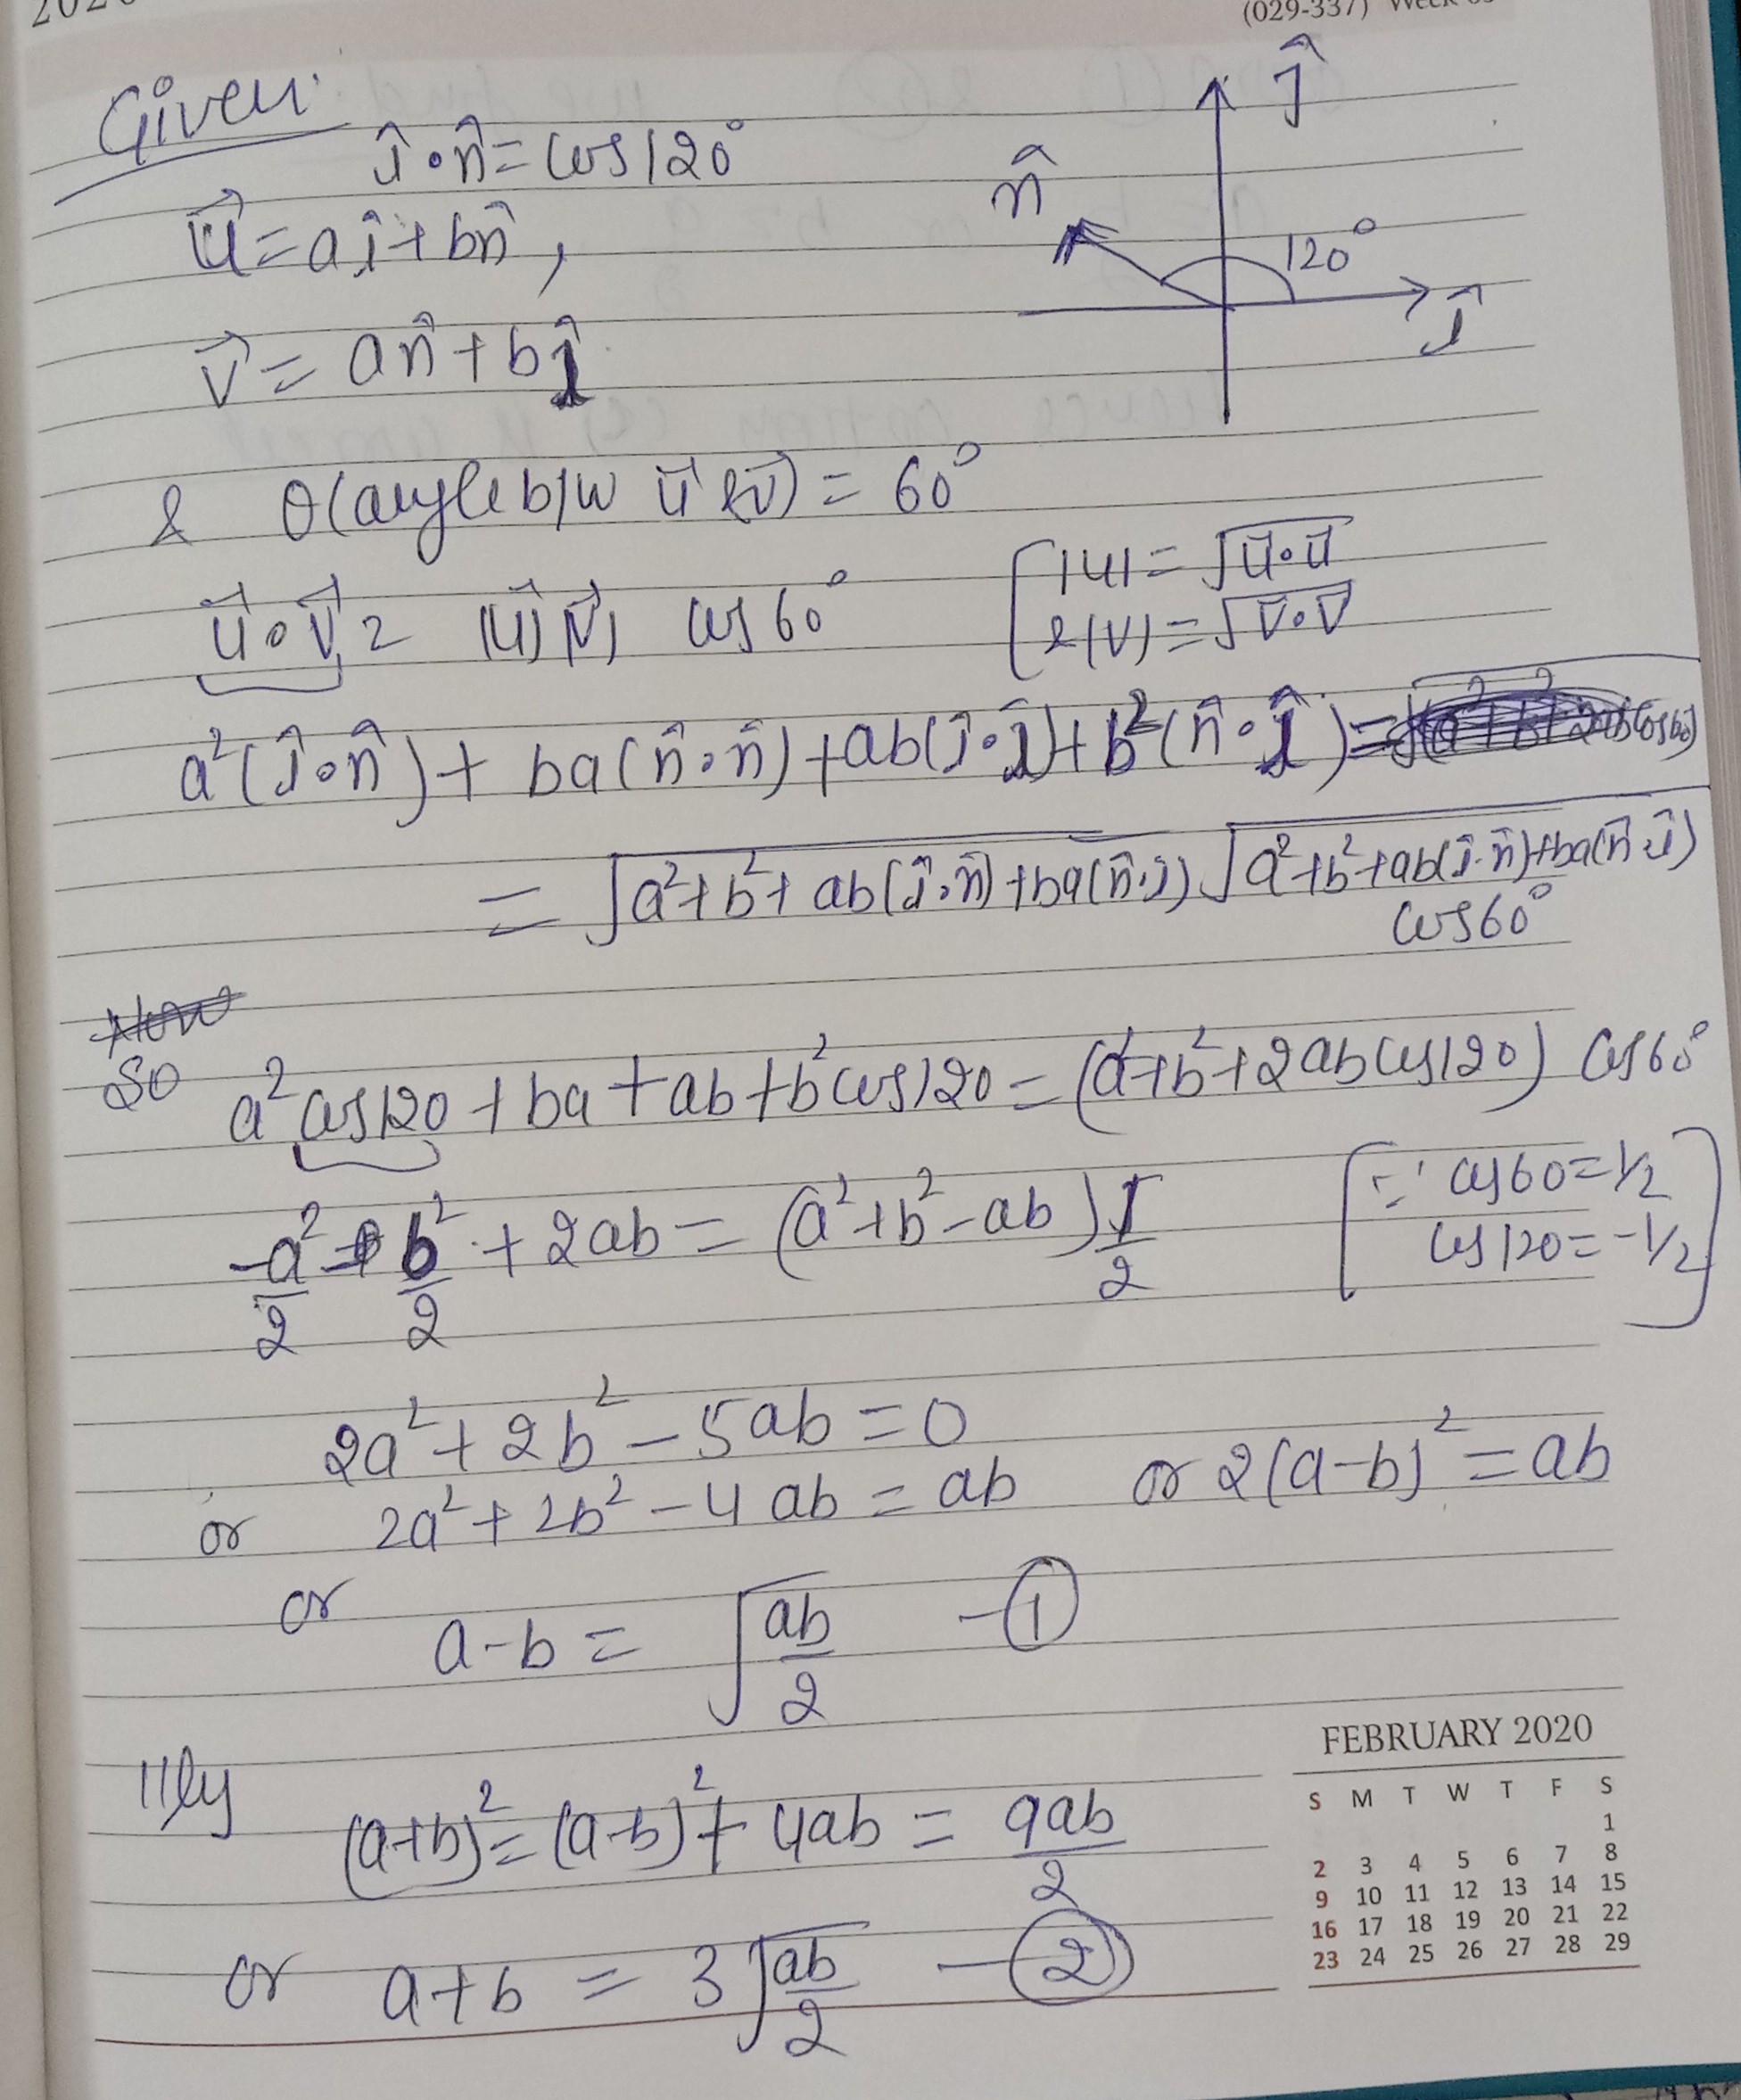 (029-337) Week
Given:
î∘n̂ = cos120°
u⃗ = aî + bn̂,
v⃗ = an̂ + bî
ĵ
n̂
120°
î
& θ(angle b/w u⃗ & v⃗) = 60°
u⃗∘v⃗ = |u⃗||v⃗| cos60°
[|u| = √u⃗∘u⃗
& |v| = √v⃗∘v⃗
a²(î∘n̂) + ba(n̂∘n̂) + ab(î∘î) + b²(n̂∘î) =
= √a²+b²+ab(î∘n̂)+ba(n̂∘î) √a²+b²+ab(î∘n̂)+ba(n̂∘î)
cos60°
Now
So a²cos120 + ba + ab + b²cos120 = (a²+b²+2abcos120) cos60°
-a²/2 - b²/2 + 2ab = (a²+b²-ab) 1/2
[∵ cos60=1/2
cos120=-1/2]
2a² + 2b² - 5ab = 0
or 2a² + 2b² - 4ab = ab or 2(a-b)² = ab
or a-b = √ab/2 -①
11ly (a+b)² = (a-b)² + 4ab = 9ab/2
or a+b = 3√ab/2 -②
FEBRUARY 2020
S M T W T F S
1
2 3 4 5 6 7 8
9 10 11 12 13 14 15
16 17 18 19 20 21 22
23 24 25 26 27 28 29